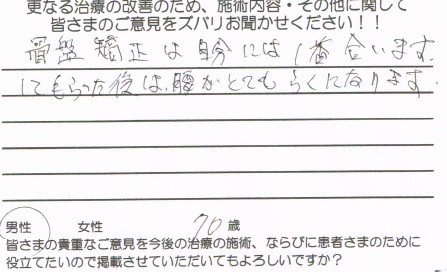 更なる治療の改善のため、施術内容・その他に関して
皆さまのご意見をズバリお聞かせください！！
骨盤矯正は自分には1番合います。
してもらった後は、腰がとてもらくになります。
男性 女性 70歳
皆さまの貴重なご意見を今後の治療の施術、ならびに患者さまのために
役立てたいので掲載させていただいてもよろしいですか？